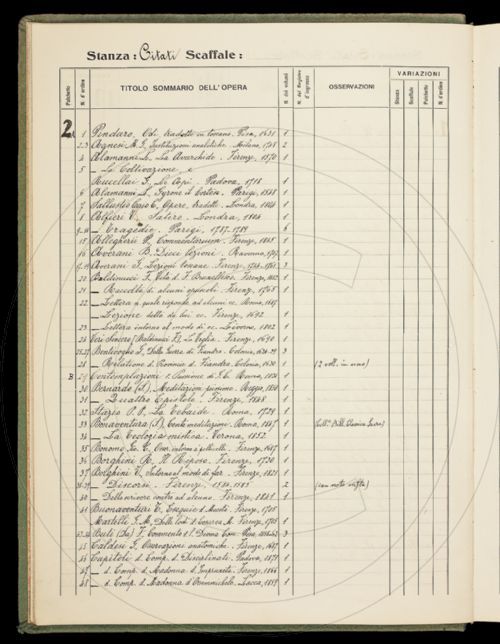 Stanza: Citati Scaffale:
VARIAZIONI
Palchetto N. d'ordine TITOLO SOMMARIO DELL'OPERA N. dei volumi N. del Registro d'ingresso OSSERVAZIONI Stanza Scaffale Palchetto N. d'ordine
2.
1 Pindaro, Odi tradotte in toscano. Pisa, 1631 1
2.3 Agnesi M. G. Instituzioni analitiche. Milano, 1748 2
4 Alamanni L., La Avarchide. Firenze, 1570 1
5 — La Coltivazione, e
Rucellai G., Le Api. Padova, 1718 1
6 Alamanni L., Gyrone il Cortese. Parigi, 1548 1
7 Sallustio Crispo C., Opere, tradotte. Londra, 1804 1
8 Alfieri V., Satire. Londra, 1804 1
— Tragedie. Parigi, 1787-1789 6
15 Allegherii P., Commentarium. Firenze, 1845 1
16 Averani B. Dieci lezioni. Ravenna, 1
Averani G. Lezioni toscane. Firenze, 1744-1761 3
20 Baldinucci F., Vita di F. Brunellesco. Firenze, 1812 1
21 — Raccolta di alcuni opuscoli. Firenze, 1765 1
22 — Lettera a quale risponde ad alcuni ec. Roma, 1687
— Lezione detta da lui ec. Firenze, 1692 1
23 — Lettera intorno al modo di ec. Livorno, 1802 1
24 Veri Sincero (Baldinucci F.), La Veglia. Firenze, 1690 1
25-27 Bentivoglio G., Della Guerra di Fiandra. Colonia, 3
28 — Relatione d. Provincie d. Fiandra. Colonia, 1630 1 (2 voll. in uno)
B 29 Contemplazioni s. Passione di G. C. Roma, 1834 1
30 Bernardo (S.), Meditazioni piissime. Reggio, 1850 1
31 — Quattro Epistole. Firenze, 1848 1
32 Stazio P. P., La Tebaide. Roma, 1729 1
33 Bonaventura (S.), Cento meditazioni. Roma, 1847 1
34 — La Teologia mistica. Verona, 1852 1
35 Bonomo Gio. C., Osser. intorno a' pellicelli. Firenze, 1687 1
36 Borghini R., Il Riposo. Firenze, 1730 1
37 Borghini V., modo di far. Firenze, 1821 1
38-39 — Discorsi. Firenze, 1584-1585 2 (con note mss.)
40 — Dello scrivere contro ad alcuno. Firenze, 1841 1
41 Buonaventuri T., Esequie d. Firenze, 1705
Martelli G. M., Delle lodi d. Firenze, 1705 1
Buti (Da) F., Commento s. l. Divina Com. Pisa, 1858-62 3
45 Caldesi G., Osservazioni anatomiche. Firenze, 1687 1
46 Capitoli d. Comp. d. Disciplinati. Padova, 1871 1
47 — d. Comp. d. Madonna d'Impruneta. Firenze, 1866 1
48 — d. Comp. d. Madonna d'Orsannichele. Lucca, 1859 1